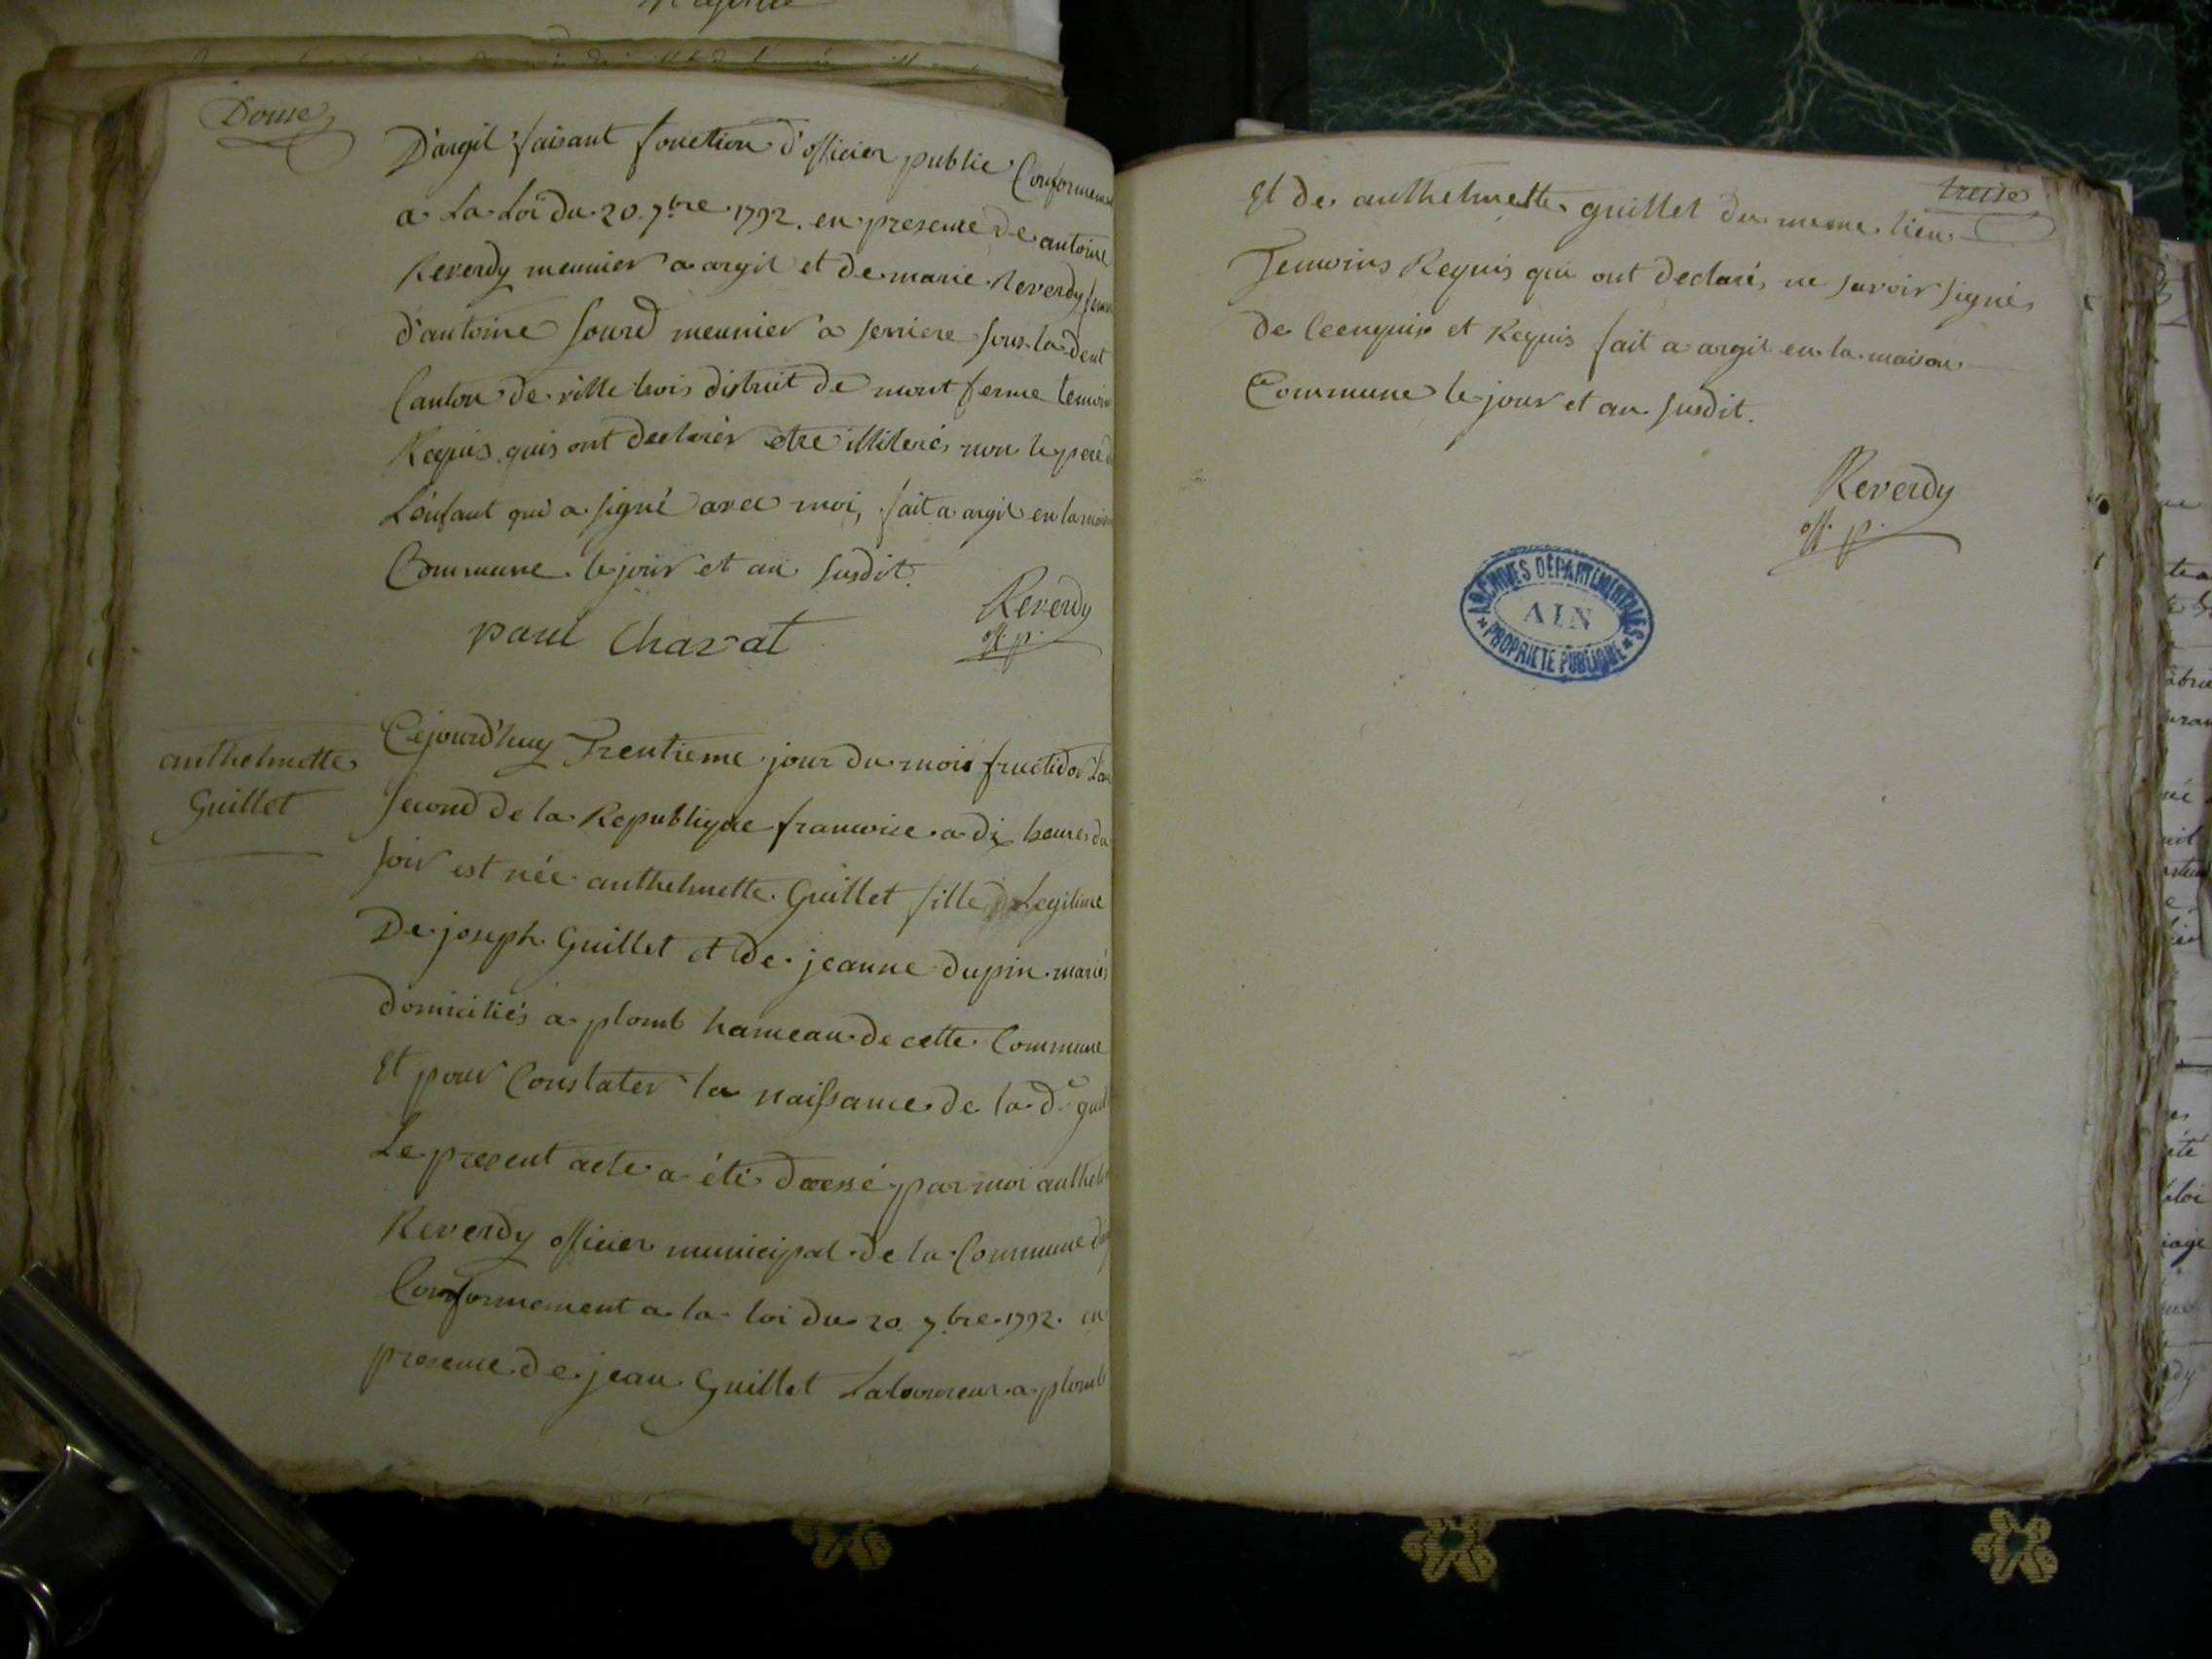 Douse
D'argil faisant fonction d'officier public Conformement
a La Loi du 20 7bre 1792. en presence de antoine
Reverdy meunier a argil et de marie Reverdy femme
d'antoine Sourd meunier a serriere sous la dent
Canton de ville bois district de mont ferme temoins
Requis quis ont declarés etre illiterés non le pere de
L'enfant qui a signé avec moi, fait a argil en la maison
Commune le jour et an susdit.
paul Chavat
Reverdy
off. p.
anthelmette
Guillet
Cejourd'huy Trentieme jour du mois fructidor L'an
second de la Republique francoise a dix heures du
soir est née anthelmette Guillet fille Legitime
De joseph Guillet et de jeanne dupin mariés
domiciliés a plomb hameau de cette Commune
Et pour Constater la naissance de la de
Le present acte a été dressé par moi
Reverdy officier municipal de la Commune
Conformement a la loi du 20 7bre 1792. en
presence de jean Guillet Laboureur a plomb
treise
Et de anthelmette guillet du meme lieu
Temoins Requis qui ont declarés ne savoir signés
de Ceenquis et Requis fait a argil en la maison
Commune le jour et an susdit.
Reverdy
off. p.
ARCHIVES DÉPARTEMENTALES
AIN
PROPRIÉTÉ PUBLIQUE